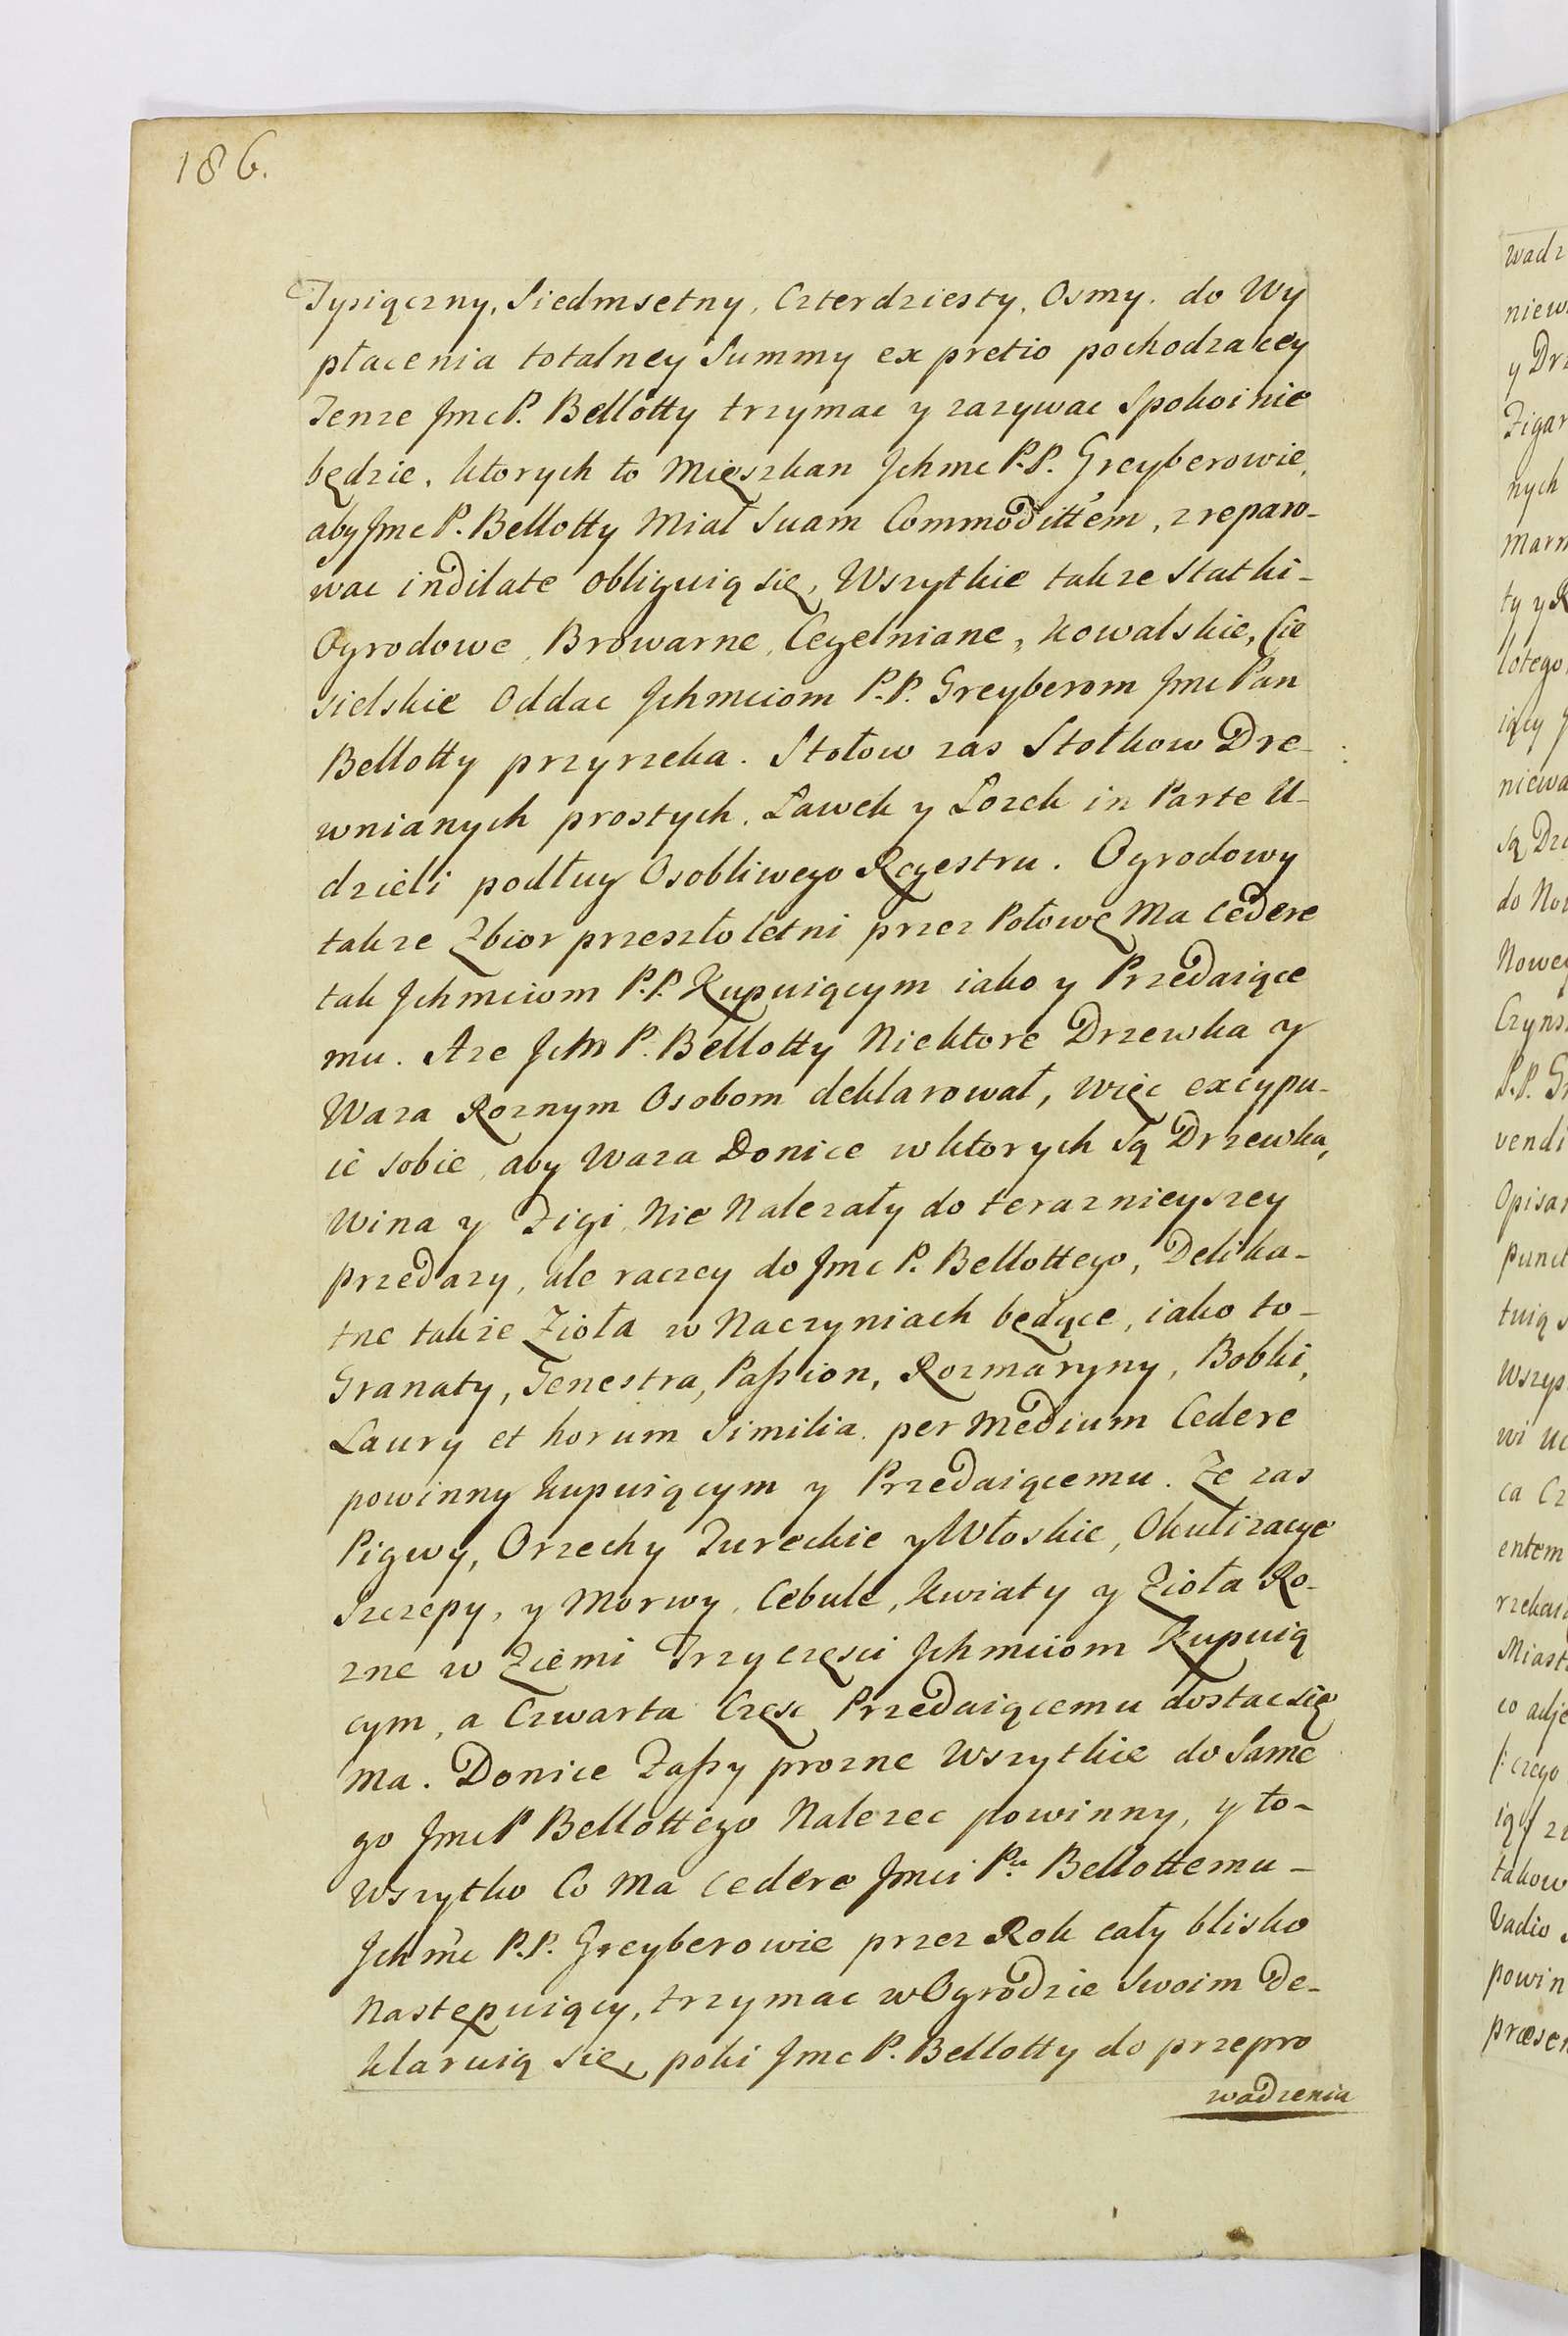 186.
Tysiączny, Siedmsetny, Czterdziesty, Osmy. do Wy
płacenia totalney Summy ex pretio pochodzakey
Tenze Jmc P. Bellotty trzymac y zazywac Spokoinie
będzie, ktorych to Mięszkan Jchmc P.P. Greyberowie,
aby Jmc P. Bellotty Miał Suam Commoditt̃em, zreparo-
wac indilate obliguią się, Wszytkie takze Statki-
Ogrodowe, Browarne, Cegelniane, Kowalskie, Cie
sielskie Oddac Jchmciom P.P. Greyberom Jmc Pan
Bellotty przyrzeka. Stołow zas Stołkow Dre-
wnianych prostych, Ławek y Łozek in Parte U-
dzieli podług Osobliwego Regestru. Ogrodowy
takze Zbior przeszłoletni przez Połowę Ma cedere
tak Jchmciom P.P. Kupuiącym iako y Przedaiące
mu. Aze JchM P. Bellotty Niektore Drzewka y
Waza Roznym Osobom deklarował, więc excypu-
ie sobie, aby Waza Donice w ktorych Są Drzewka,
Wina y Figi, Nie Nalezały do teraznieyszey
przedazy, ale raczey do Jmc P. Bellottego, Delika-
tne takze Zioła w Naczyniach będące, iako to-
Granaty, Genestra, Paſsion, Rozmaryny, Bobki,
Laury et horum Similia, per Medium Cedere
powinny kupuiącym y Przedaiącemu. Ze zas
Pigwy, Orzechy Tureckie y Włoskie, Okulizacye
Szczepy, y Morwy, Cebule, Kwiaty y Zioła Ro-
zne w Ziemi Trzy częsci Jchmciom Kupuią
cym, a Czwarta Częsc Przedaiącemu dostac się
Ma. Donice Faſsy prozne Wszytkie do Same
go Jmc P Bellottego Nalezec powinny, y to-
Wszytko Co Ma cedere Jmci Pu Bellottemu-
Jchmc P.P. Greyberowie przez Rok cały blisko
Nastepuiący, trzymac w Ogrodzie Swoim De-
klaruią się, poki Jmc P. Bellotty do przepro
wadzenia